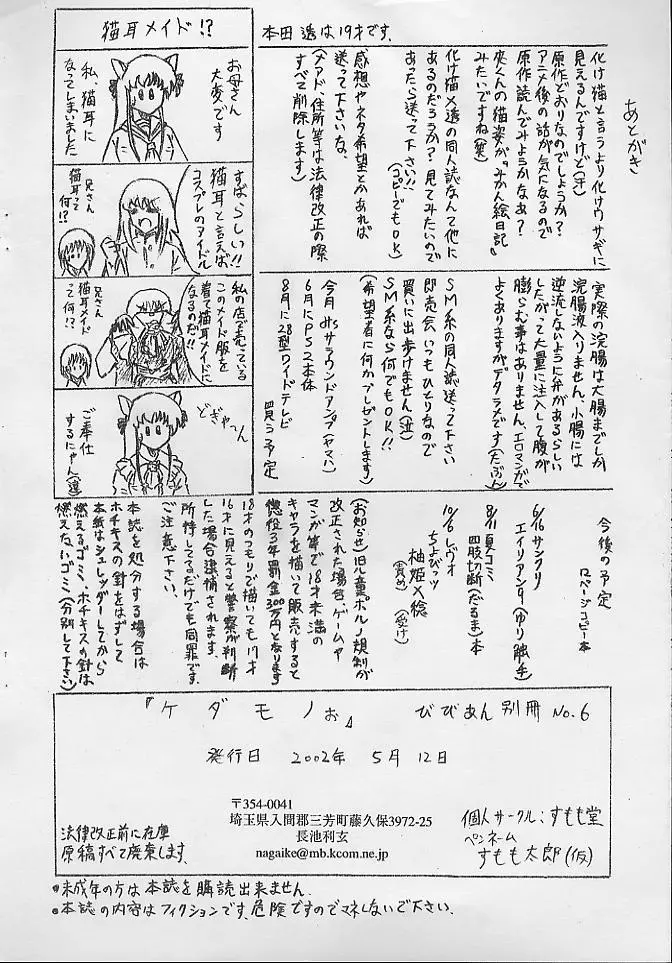 本田透は19才です。
あとがき
化け猫と言うより化けウサギに
見えるんですけど(汗)
原作どおりなのでしょうか?
アニメ後の話が気になるので
原作読んでみようかなぁ?
夾くんの猫姿が『みかん絵日記』
みたいですね(笑)
化け猫×透の同人誌なんて他に
あるのだろうか?見てみたいので
あったら送って下さい!!
(コピーでもOK)
感想やネタ希望とかあれば
送って下さいな。
(メアド、住所等は法律改正の際
すべて削除します)
実際の浣腸は大腸までしか
浣腸液入りません。小腸には
逆流しないように弁があるらしい
したがって大量に注入して腹が
膨らむ事はありません。エロマンガで
よくありますがデタラメです(たぶん)
SM系の同人誌送って下さい
即売会いつもひとりなので
買いに出歩けません(泣)
SM系なら何でもOK!!
(希望者に何かプレゼントします)
今月 サラウンドアンプ(ヤマハ)
6月にPS2本体
8月に28型ワイドテレビ
買う予定
今後の予定
ロページコピー本
6/16 サンクリ
エイリアン9(ゆり触手)
8/11 夏コミ
四肢切断(だるま)本
10/6 レヴォ
ちょびっツ
柚姫×稔
(責め) (受け)
(お知らせ)旧児童ポルノ規制が
改正された場合、ゲームや
マンガ等で18才未満の
キャラを描いて販売すると
懲役3年罰金300万円となります
18才のつもりで描いても17才
16才に見えると警察が判断
した場合逮捕されます。
所持してるだけでも同罪です。
ご注意下さい。
本誌を処分する場合は
ホチキスの針をはずして
本紙はシュレッダーしてから
燃えるゴミ、ホチキスの針は
燃えないゴミ(分別して下さい)
猫耳メイド!?
お母さん
大変です
私、猫耳に
なってしまいました
すばらしい!!
猫耳と言えば
コスプレのアイドル
兄さん
猫耳って
何!?
私の店で売っている
このメイド服を
着て猫耳メイドに
なるのだ!!
兄さん
猫耳メイド
って何!?
どぎゃーん
ご奉仕
するにゃん(透)
『ケダモノぉ』 びびあん別冊 No.6
発行日 2002年 5月 12日
〒354-0041
埼玉県入間郡三芳町藤久保3972-25
長池利玄
nagaike@mb.kcom.ne.jp
個人サークル:すもも堂
ペンネーム
すもも太郎(仮)
法律改正前に在庫
原稿すべて廃棄します。
●未成年の方は本誌を購読出来ません。
●本誌の内容はフィクションです。危険ですのでマネしないで下さい。